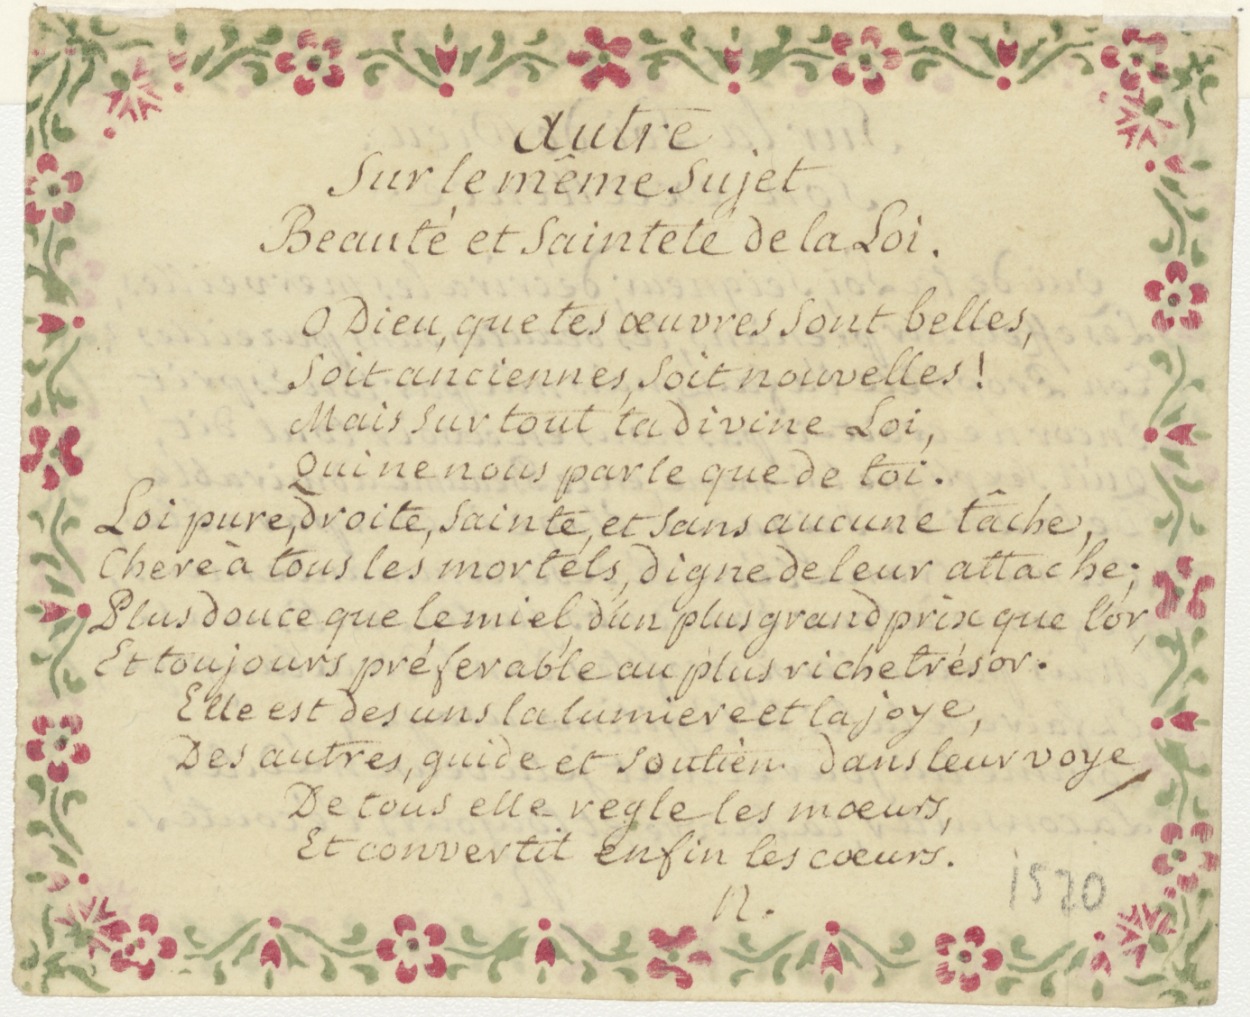 Autre
Sur le même Sujet
Beauté et Sainteté de la Loi.
O Dieu, que tes œuvres sont belles,
Soit anciennes, soit nouvelles !
Mais sur tout ta divine Loi,
Qui ne nous parle que de toi.
Loi pure, droite, sainte, et sans aucune tâche,
Chere à tous les mortels, digne de leur attache;
Plus douce que le miel, d'un plus grand prix que l'or,
Et toujours préferable au plus riche trésor.
Elle est des uns la lumiere et la joye,
Des autres, guide et soutien dans leur voye,
De tous elle regle les mœurs,
Et convertit enfin les cœurs.
12.
1520